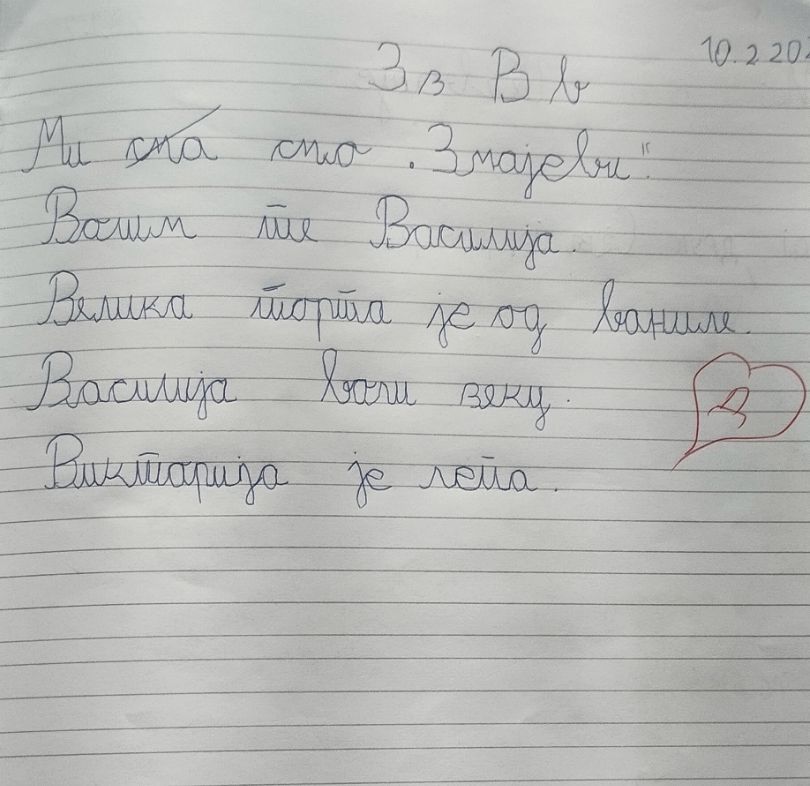 10.2.20
З з В в
Ми сма смо „Змајеви“.
Волим те Василија.
Велика торта је од ваниле.
Василија воли зеку.
Викторија је лепа.